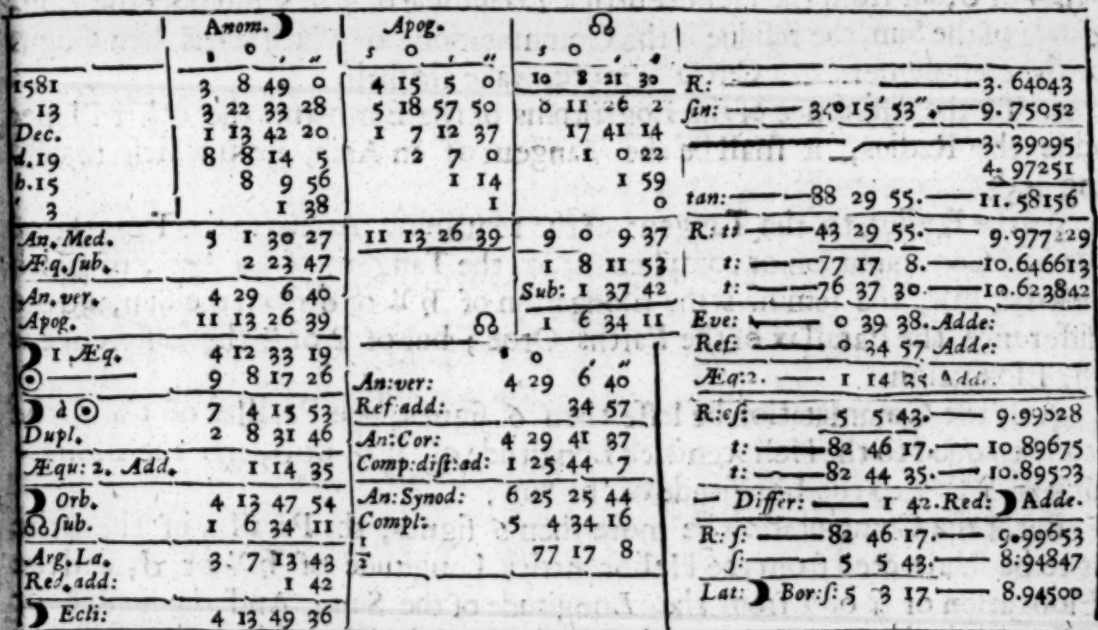 Anom.☽ Apog. ☊
s o ′ ″ s o ′ ″ s o ′ ″
1581 3 8 49 0 4 15 5 0 10 8 21 30
13 3 22 33 28 5 18 57 50 8 11 26 2
Dec. 1 13 42 20 1 7 12 37 17 41 14
d.19 8 8 14 5 2 7 0 1 0 22
h.15 8 9 56 1 14 1 59
′ 3 1 38 1 0
An. Med. 5 1 30 27 11 13 26 39 9 0 9 37
Æq.sub. 2 23 47 10 8 11 53
An. ver. 4 29 6 40 Sub: 1 37 42
Apog. 11 13 26 39 ☊ 1 6 34 11
☽ 1 Æq. 4 12 33 19
☉ 9 8 17 26
☽ à ☉ 7 4 15 53
Dupl. 2 8 31 46
Æqu: 2. Add. 1 14 35
☽ Orb. 4 13 47 54
☊ sub. 1 6 34 11
Arg. La. 3 7 13 43
Red. add: 1 42
☽ Ecli: 4 13 49 36
s o ′ ″
An:ver: 4 29 6 40
Ref add: 34 57
An:Cor: 4 29 41 37
Comp:dist:ad: 1 25 44 7
An:Synod: 6 25 25 44
Compl: 5 4 34 16
1/2 77 17 8
R: 3. 64043
sin: 34° 15′ 53″. 9. 75052
3. 39095
4. 97251
tan: 88 29 55. 11. 58156
R: t: 43 29 55. 9.977229
t: 77 17 8. 10.646613
t: 76 37 30. 10.623842
Eve: 0 39 38. Adde:
Ref: 0 34 57 Adde:
Æq:2. 1 14 35 Add.
R:cs: 5 5 43. 9.99828
t: 82 46 17. 10.89675
t: 82 44 35. 10.89503
Differ: 1 42. Red: ☽ Adde.
R: s: 82 46 17. 9.99653
s: 5 5 43. 8.94847
Lat: ☽ Bor:s: 5 3 17. 8.94500